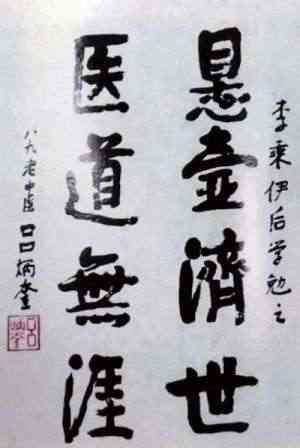 李乘伊后学勉之
悬壶濟世
医道無涯
八九老中医吕炳奎